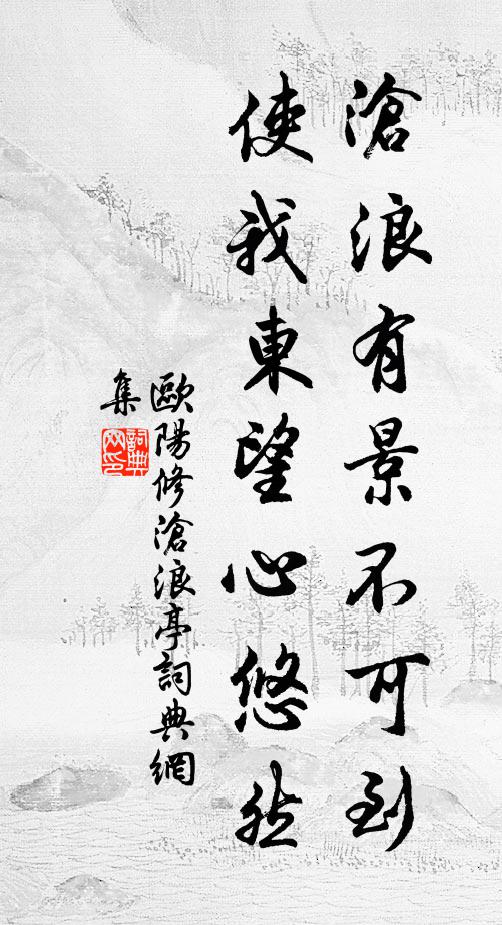 滄浪有景不可到
使我東望心悠然
歐陽修滄浪亭詞典網
集
詞典網印